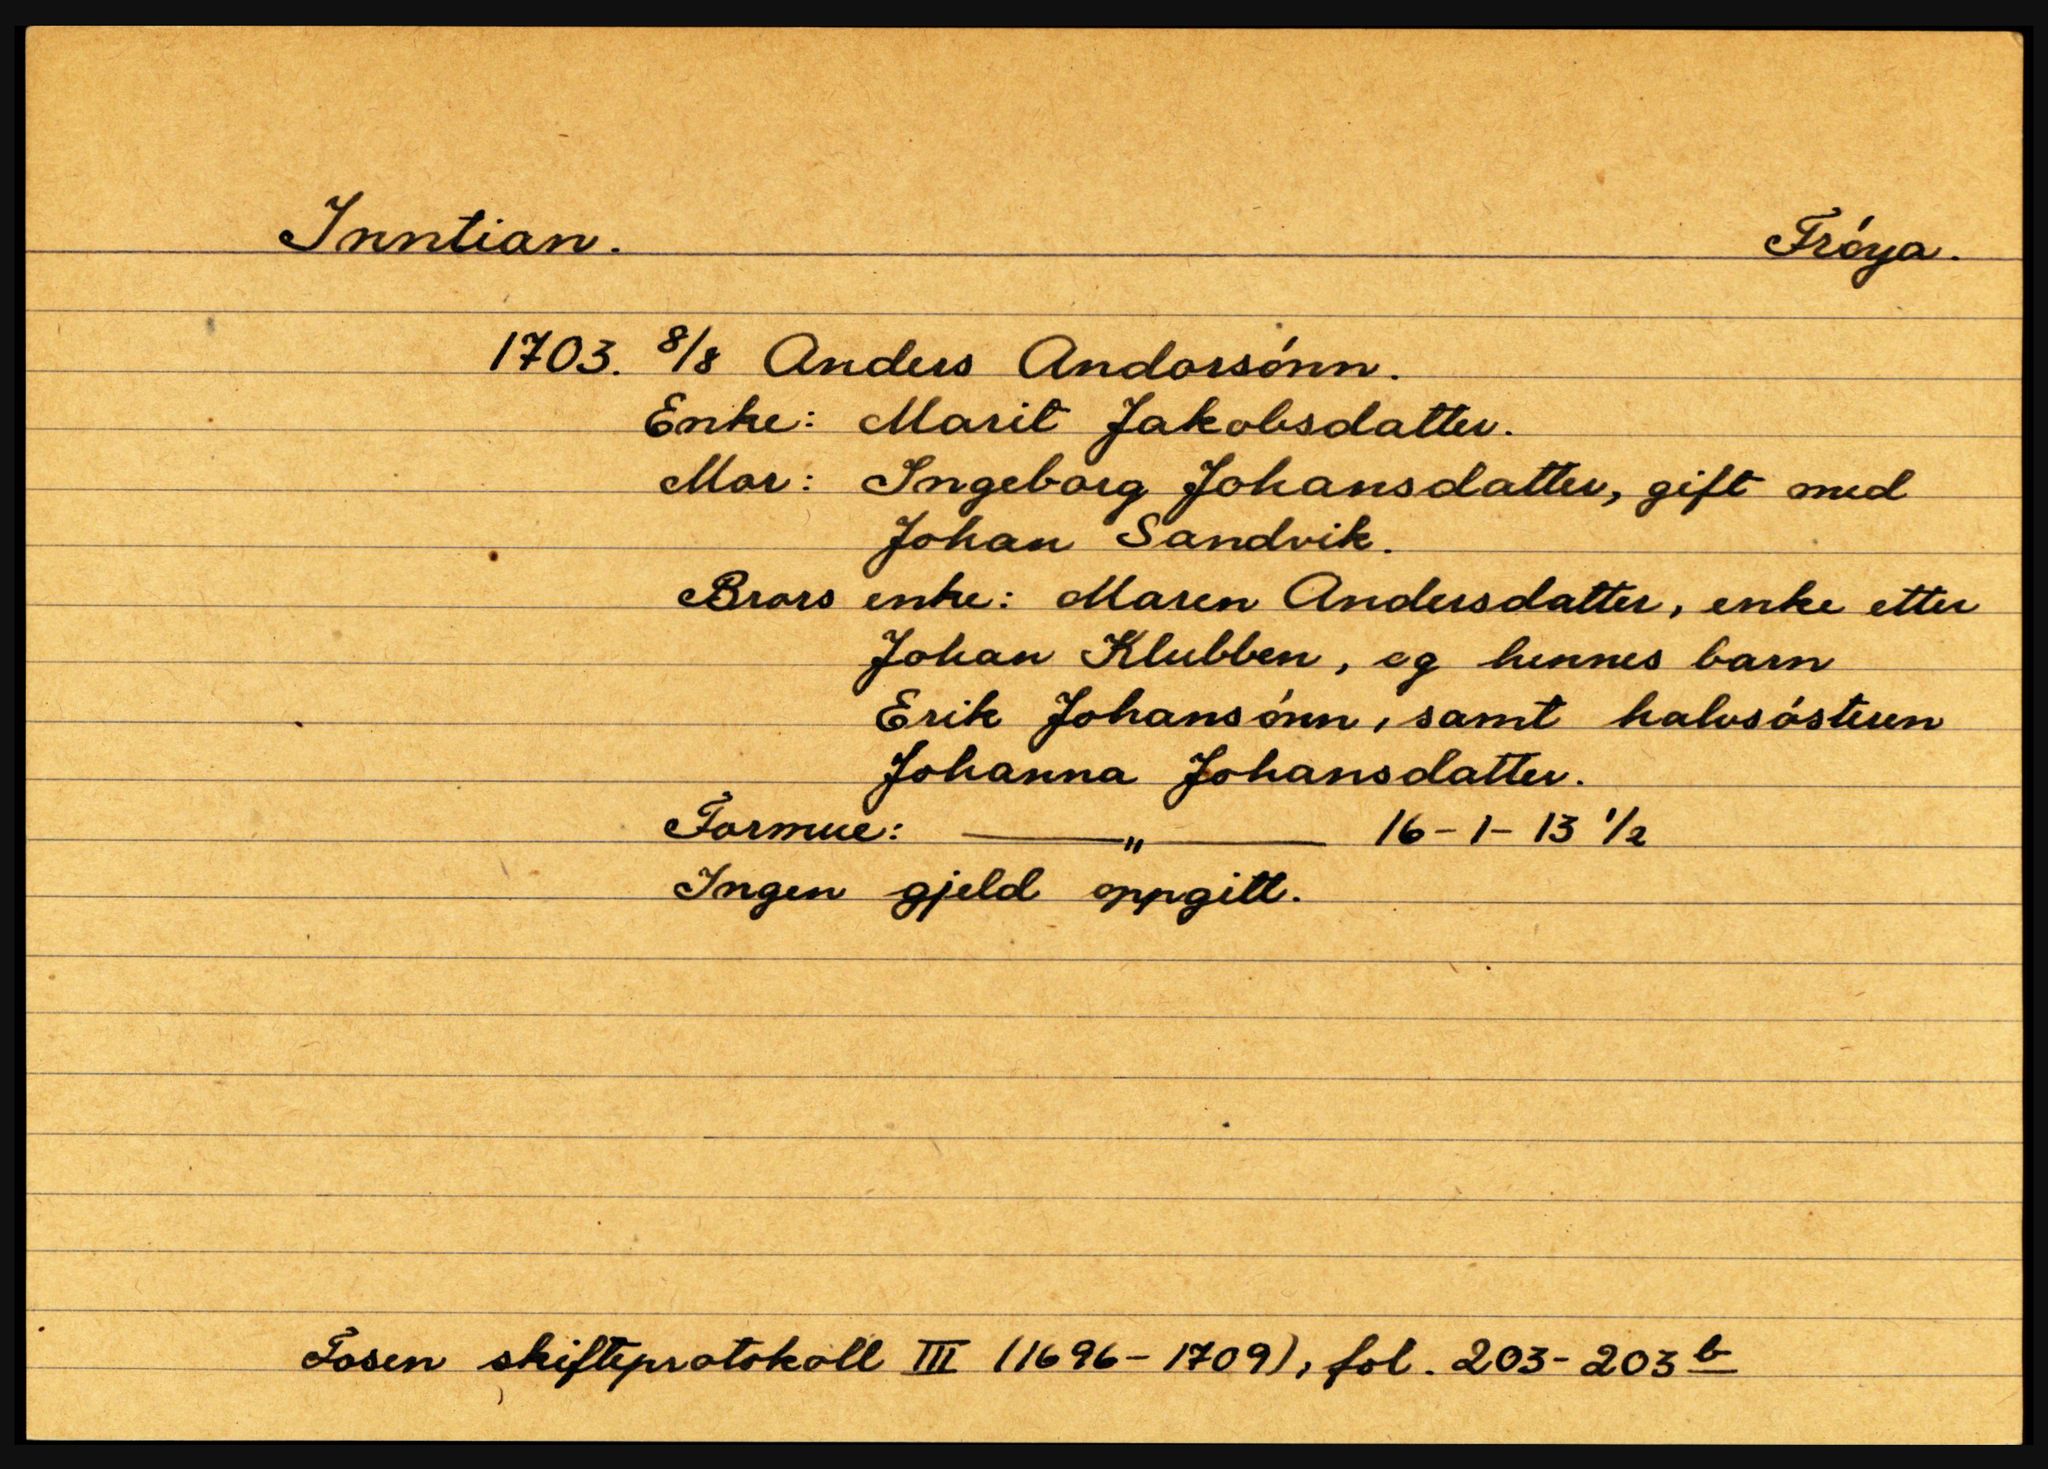 Inntian. Fróya.
1703. 8/8 Anders Andorsónn.
Enke: Marit Jakobsdatter.
Mor: Ingeborg Johansdatter, gift med
Johan Sandvik.
Brors enke: Maren Andersdatter, enke etter
Johan Klubben, og hennes barn
Erik Johansónn, samt halvsósteren
Johanna Johansdatter.
Formue: —— " —— 16-1-13 1/2
Ingen gjeld oppgitt.
Fosen skifteprotokoll III (1696-1709), fol. 203-203 b